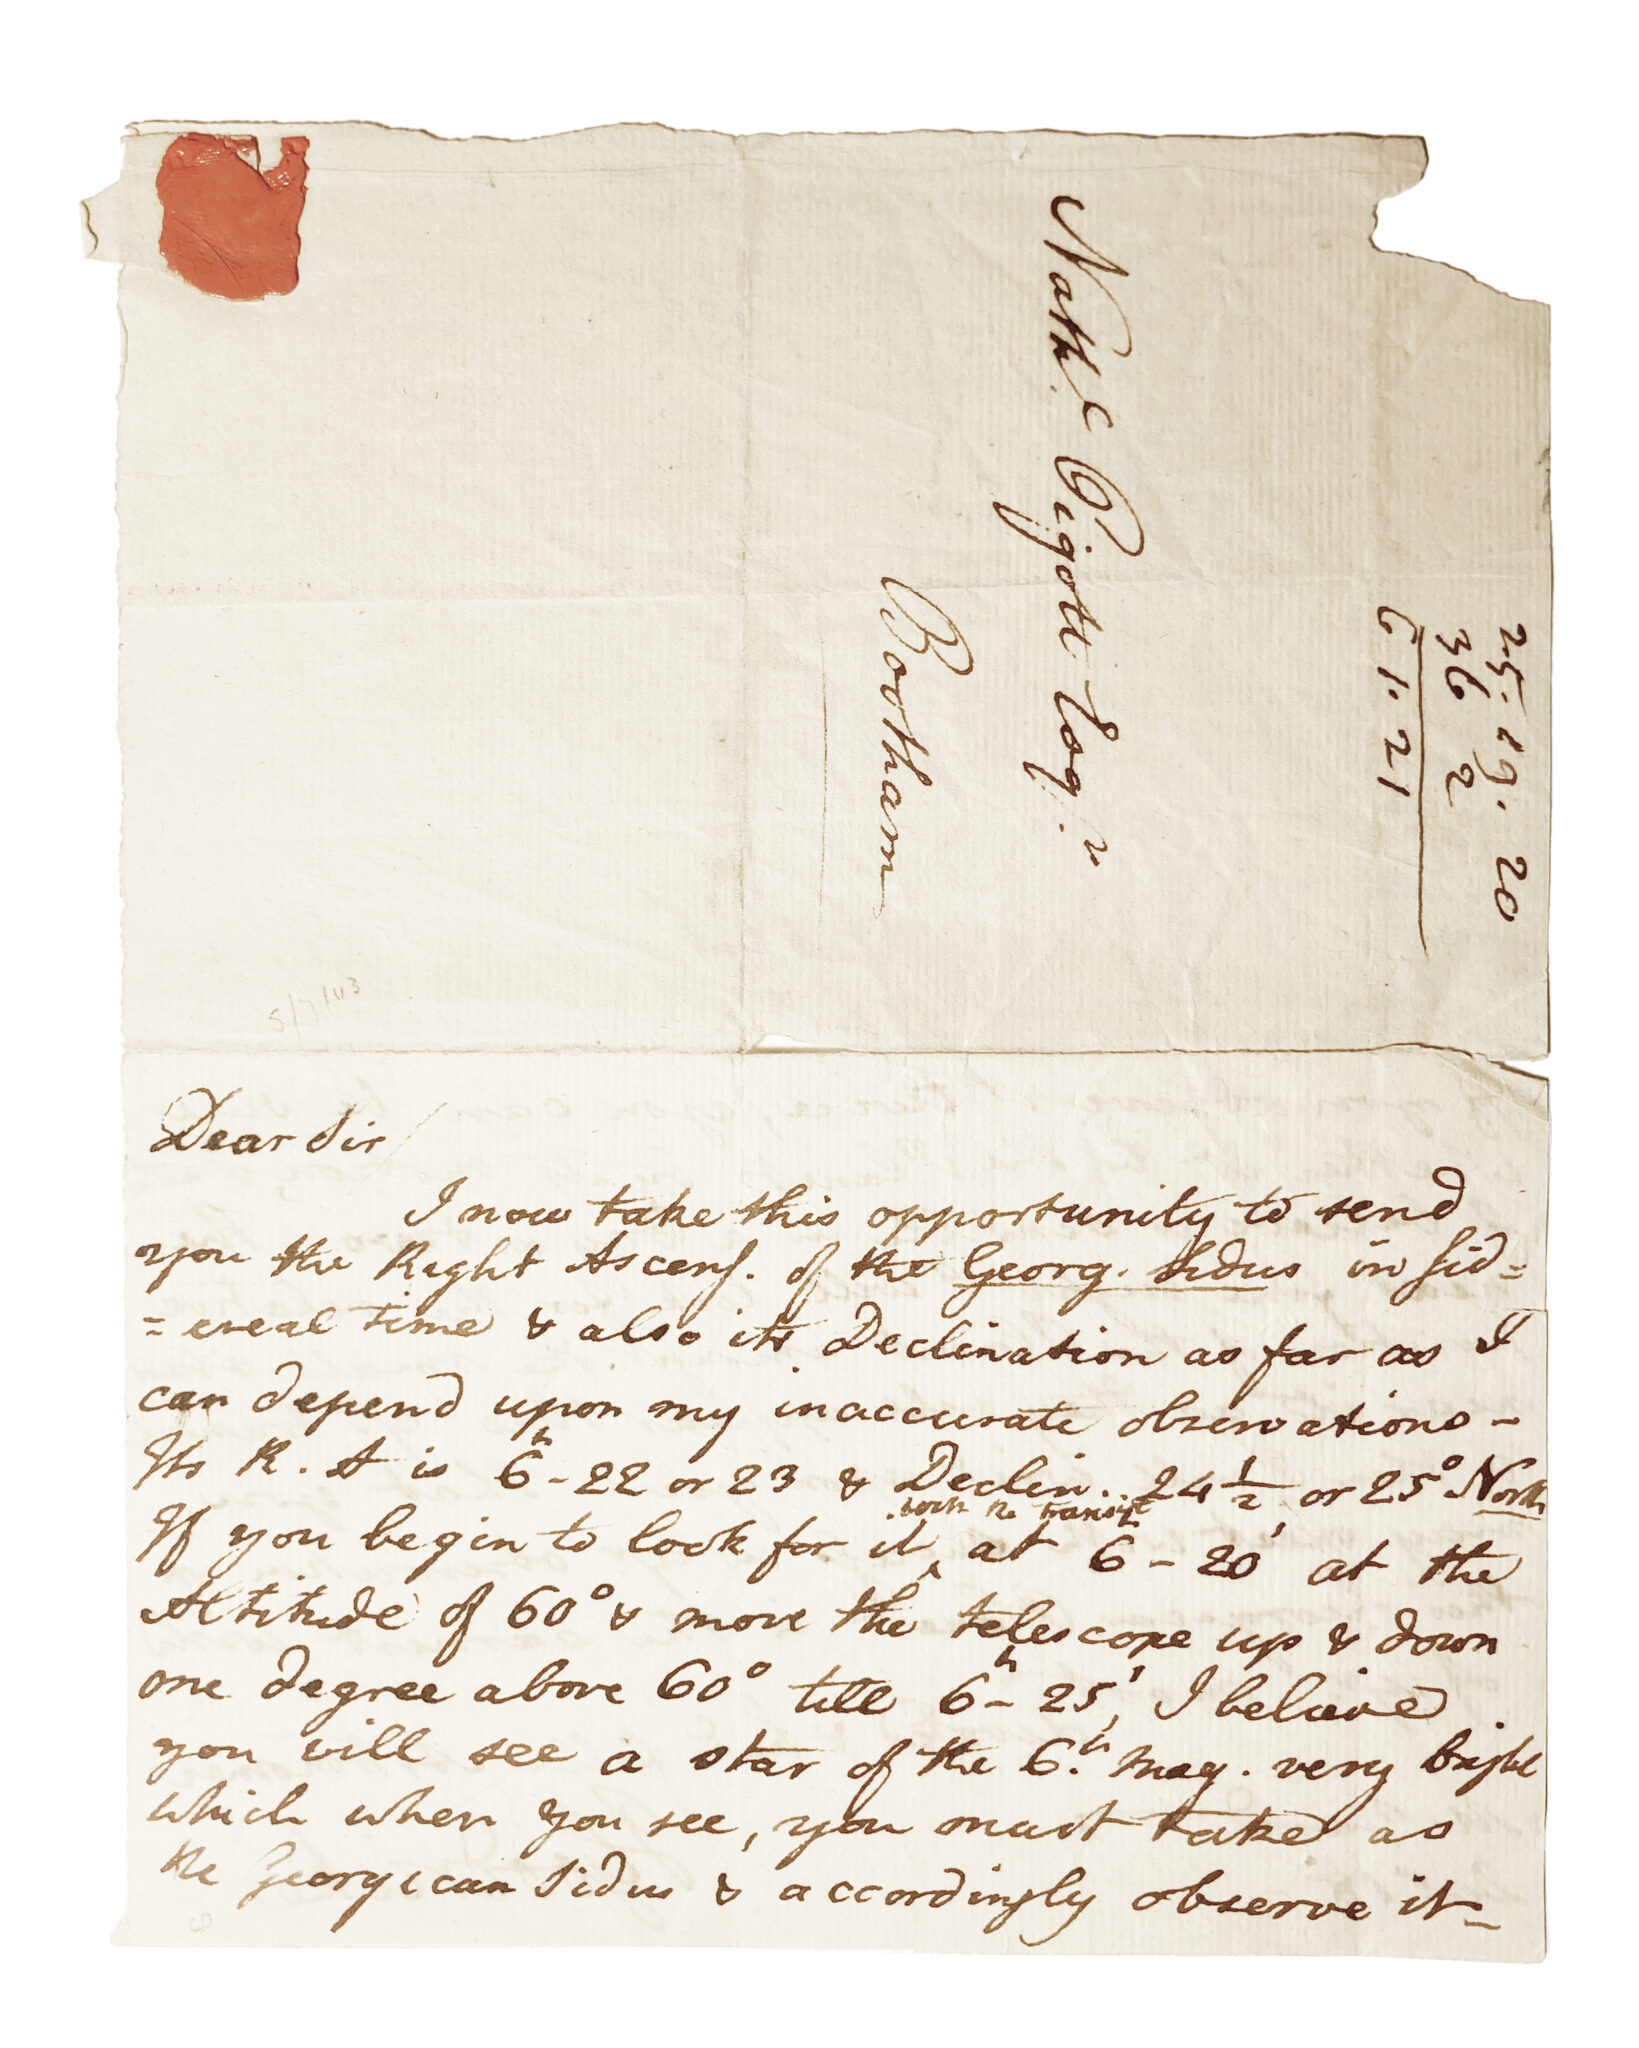 Nath.l Pigott Esq.r
Bootham
25. 19. 20
36 2
61. 21
5/7/143
Dear Sir/
I now take this opportunity to send
you the Right Ascens. of the Georg. Sidus in sid=
=ereal time & also its Declination as far as I
can depend upon my inaccurate observations -
Its R. A is 6h - 22 or 23 & Declin. 24 1/2 or 25° North
with the transit
If you begin to look for it ^ at 6h - 20' at the
Altitude of 60° & move the telescope up & down
one degree above 60° till 6h - 25', I believe
you will see a star of the 6.th Mag. very bright
which when you see, you must take as
the Georgican Sidus & accordingly observe it -